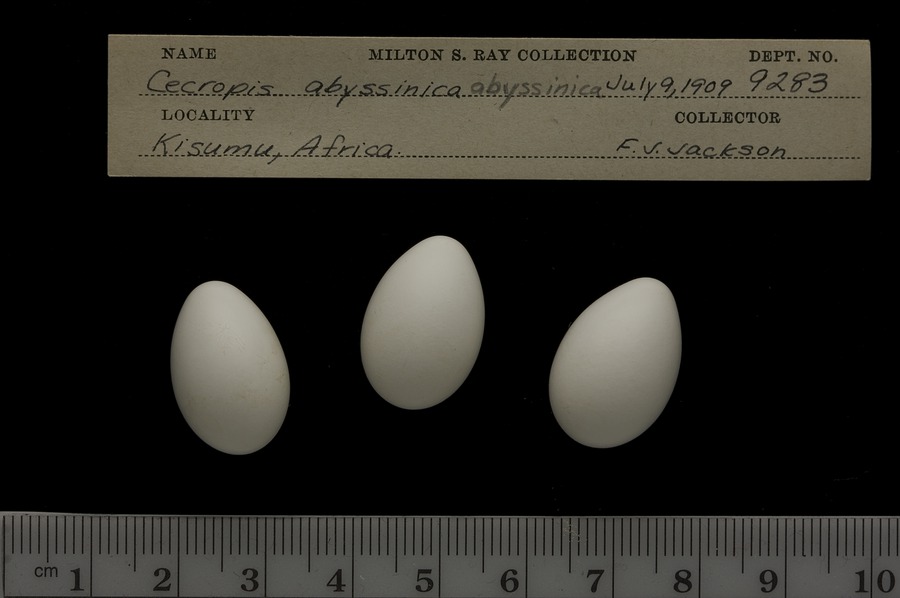 NAME MILTON S. RAY COLLECTION DEPT. NO.
Cecropis abyssinica abyssinica July 9, 1909 9283
LOCALITY COLLECTOR
Kisumu, Africa. F. J. Jackson
cm 1 2 3 4 5 6 7 8 9 10